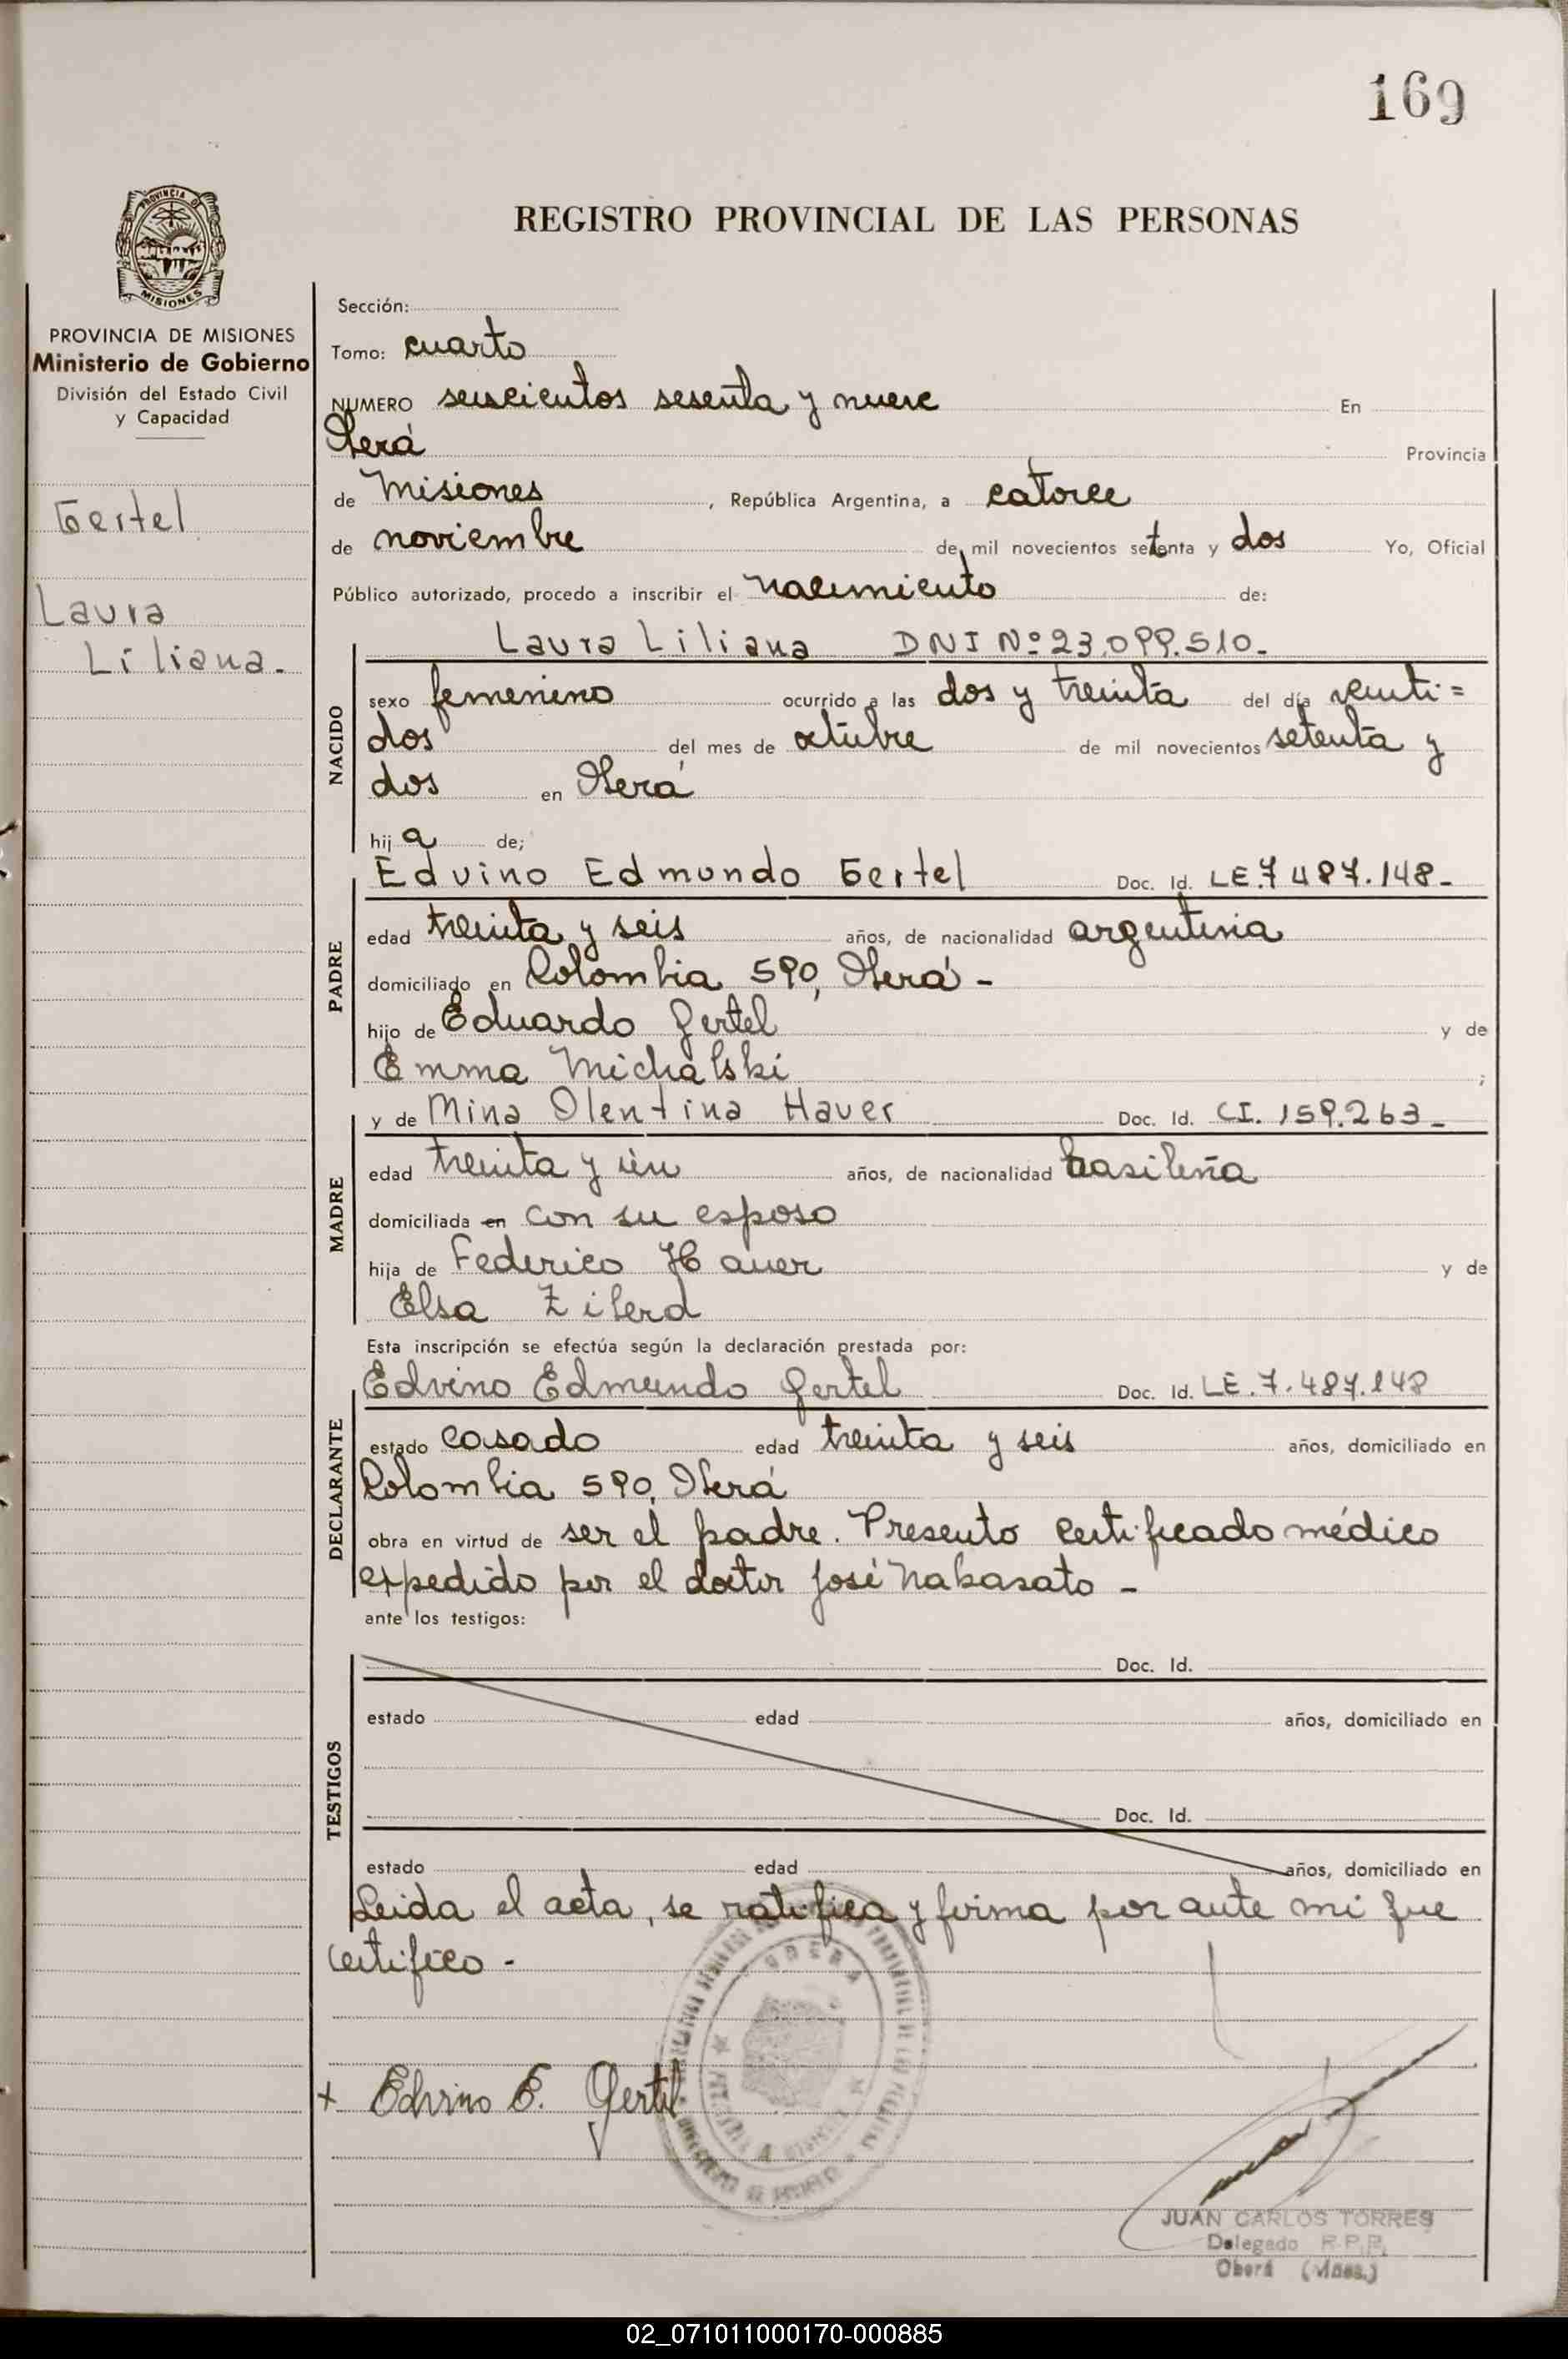 169
REGISTRO PROVINCIAL DE LAS PERSONAS
PROVINCIA DE
MISIONES
PROVINCIA DE MISIONES
Ministerio de Gobierno
División del Estado Civil
y Capacidad
Gertel
Laura
Liliana.-
Sección:
Tomo: cuarto
NUMERO seiscientos sesenta y nueve En
Oberá Provincia
de Misiones, República Argentina, a catorce
de noviembre de mil novecientos setenta y dos Yo, Oficial
Público autorizado, procedo a inscribir el nacimiento de:
Laura Liliana DNI Nº 23.099.510.-
NACIDO
sexo femenino ocurrido a las dos y treinta del día veinti=
dos del mes de octubre de mil novecientos setenta y
dos en Oberá
hija de;
PADRE
Edvino Edmundo Gertel Doc. Id. LE.7487.148-
edad treinta y seis años, de nacionalidad argentina
domiciliado en Colombia 590, Oberá -
hijo de Eduardo Gertel y de
Emma Michalski ;
MADRE
y de Mina Olentina Hauer Doc. Id. CI. 159.263-
edad treinta y un años, de nacionalidad brasileña
domiciliada en con su esposo
hija de Federico Hauer y de
Elsa Ziberd
Esta inscripción se efectúa según la declaración prestada por:
DECLARANTE
Edvino Edmundo Gertel Doc. Id. LE.7.487.148
estado casado edad treinta y seis años, domiciliado en
Colombia 590, Oberá
obra en virtud de ser el padre. Presento certificado médico
expedido por el doctor José Nakasato -
ante los testigos:
TESTIGOS
Doc. Id.
estado edad años, domiciliado en
Doc. Id.
estado edad años, domiciliado en
Leida el acta, se ratifica y firma por ante mi que
certifico -
+ Edvino E. Gertel
OBERA
JUAN CARLOS TORRES
Delegado R.P.P.
Oberá (Mnes.)
02_071011000170-000885